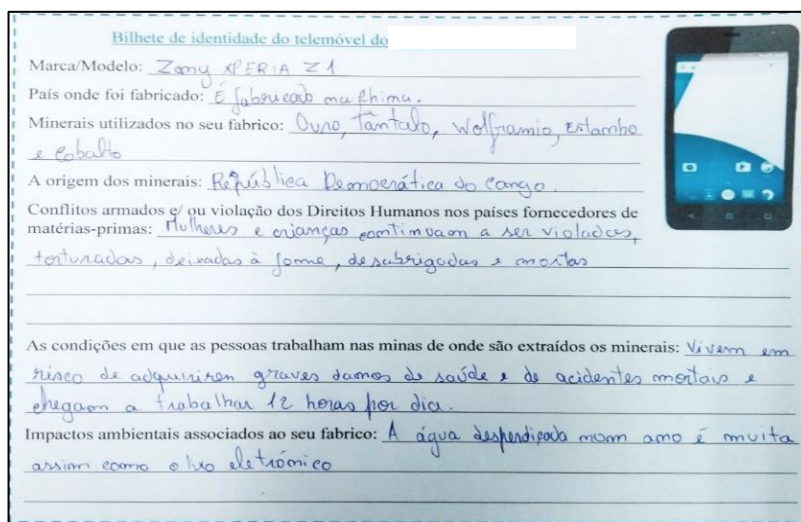 Bilhete de identidade do telemóvel do
Marca/Modelo: Zony XPERIA Z1
País onde foi fabricado: É fabricado na China.
Minerais utilizados no seu fabrico: Ouro, Tântalo, Wolframio, Estanho
e Cobalto
A origem dos minerais: República Democrática do Congo.
Conflitos armados e/ ou violação dos Direitos Humanos nos países fornecedores de
matérias-primas: Mulheres e crianças continuam a ser violadas,
torturadas, deixadas à fome, desabrigadas e mortas
As condições em que as pessoas trabalham nas minas de onde são extraídos os minerais: Vivem em
risco de adquirirem graves danos de saúde e de acidentes mortais e
chegam a trabalhar 12 horas por dia.
Impactos ambientais associados ao seu fabrico: A água desperdiçada num ano é muita
assim como o lixo eletrónico